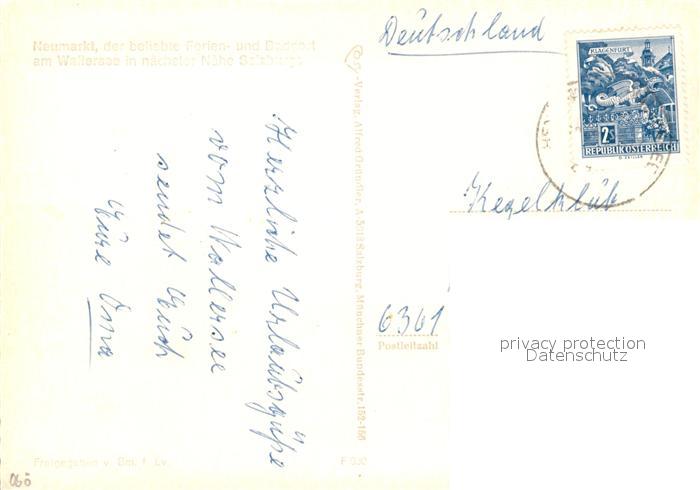 Neumarkt, der beliebte Ferien- und Badeort
am Wallersee in nächster Nähe Salzburgs
Herzliche Urlaubsgrüße
vom Wallersee
sendet Euch
Eure Oma
Verlag Alfred Gründler, A-5013 Salzburg, Münchner Bundesstr. 152-156
Deutschland
KLAGENFURT
2 S
REPUBLIK ÖSTERREICH
Kegelklub
6361
Postleitzahl
privacy protection
Datenschutz
Freigegeben v. Bm. f. Lv.